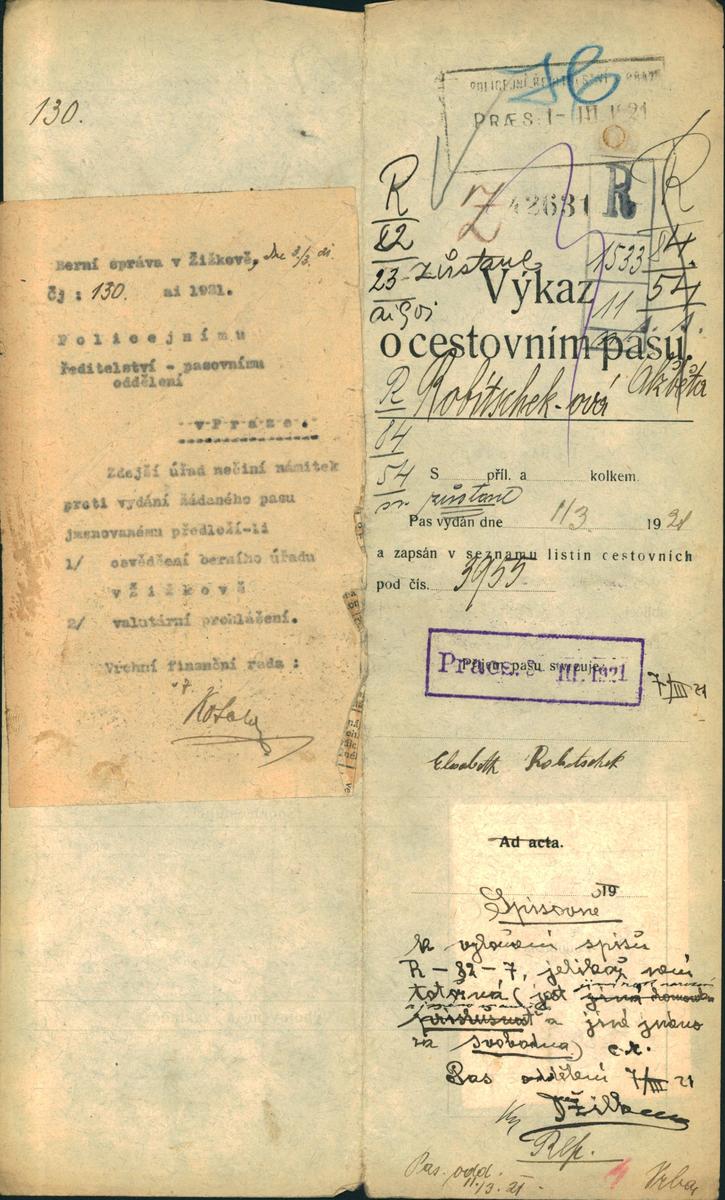 130.
Berní správa v Žižkově, dne 3/3. ai.
Čj : 130. ai 1921.
Policejnímu
ředitelství - pasovnímu
oddělení
v Praze.
Zdejší úřad nečiní námitek
proti vydání žádaného pasu
jmenovanému předloží-li
1/ osvědčení berního úřadu
v Žižkově
2/ valutární prohlášení.
Vrchní finanční rada :
POLICEJNÍ ŘEDITELSTVÍ
PRÆS. 1- III 1921
R
82
23 - zůstane
R
1533
11
R
84.
54
Výkaz
o cestovním pasu.
Robitschek-ová Alžběta
R
84
54
S příl. a kolkem.
zůstane
Pas vydán dne 1/3 1921
a zapsán v seznamu listin cestovních
pod čís. 3955
Příjem pasu stvrzuje:
Praes. III. 1921
7/III 21
Elsabeth Robitschek
Ad acta.
19
Spisovně
k vyloučení spisů
R - 82 - 7, jelikož není
totožná (jest
příslušnost a jiné jméno
svobodna)
Pas oddělení 7/III 21
Pas. odd.
11/3. 21.